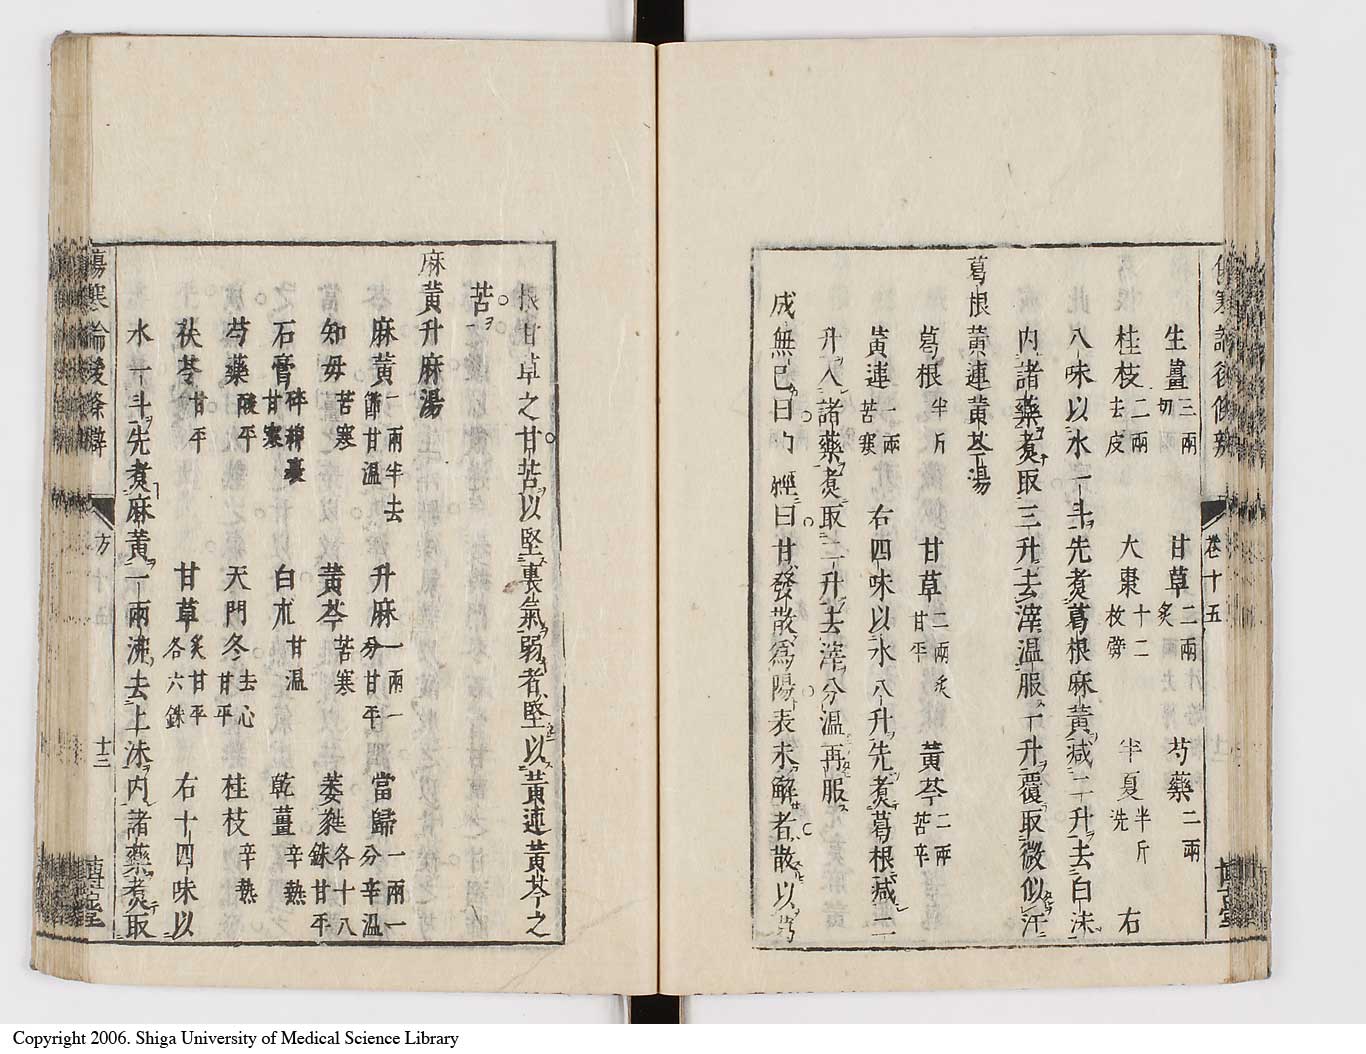 卷十五
生薑三兩切 甘草二兩炙 芍藥二兩
桂枝二兩去皮 大棗十二枚擘 半夏半斤洗 右
八味以水一斗先煑葛根麻黃減二升去白沫
内諸藥煑取三升去滓温服一升覆取微似汗
葛根黃連黃芩湯
葛根半斤 甘草二兩炙甘平 黃芩二兩苦辛
黃連一兩苦寒 右四味以水八升先煑葛根減二
升入諸藥煑取二升去滓分温再服
成無己曰内經曰甘發散爲陽表未解者散以葛
根甘草之甘苦以堅裏氣弱者堅以黃連黃芩之
苦
麻黃升麻湯
麻黃一兩半去節甘温 升麻一兩一分甘平 當歸一兩一分辛温
知毋苦寒 黃芩苦寒 萎蕤各十八銖甘平
石膏碎棉裹甘寒 白朮甘温 乾薑辛熱
芍藥酸平 天門冬去心甘平 桂枝辛熱
茯苓甘平 甘草炙甘平各六銖 右十四味以
水一斗先煑麻黃一兩沸去上沫内諸藥煑取
傷寒論後條辨 方 十三 博堂
Copyright 2006. Shiga University of Medical Science Library